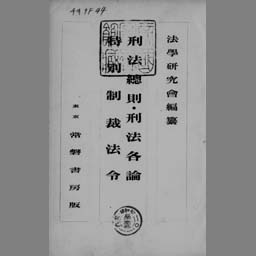 449F44
法學研究會編纂
刑法總則・刑法各論
特別制裁法令
東京 常磐書房版